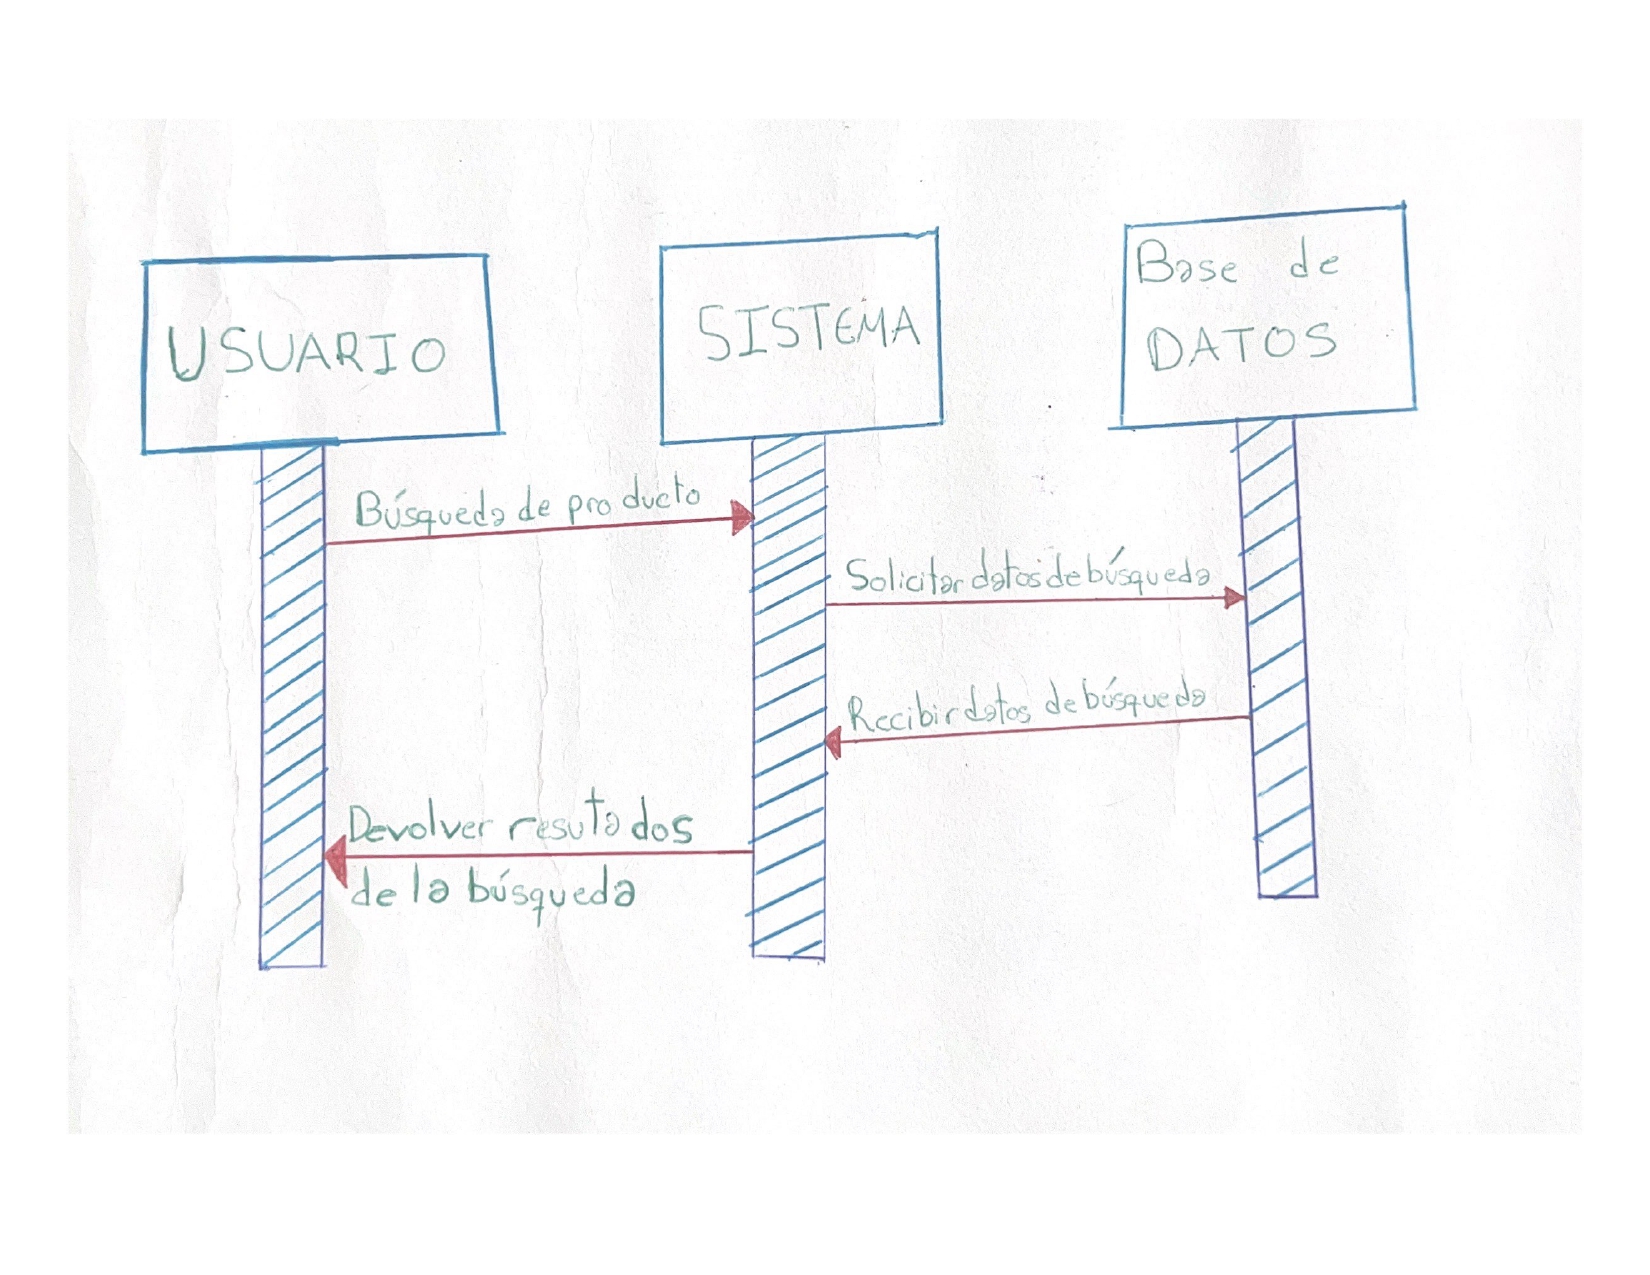 USUARIO
SISTEMA
Base de
DATOS
Búsqueda de producto
Solicitar datos de búsqueda
Recibir datos de búsqueda
Devolver resutados
de la búsqueda